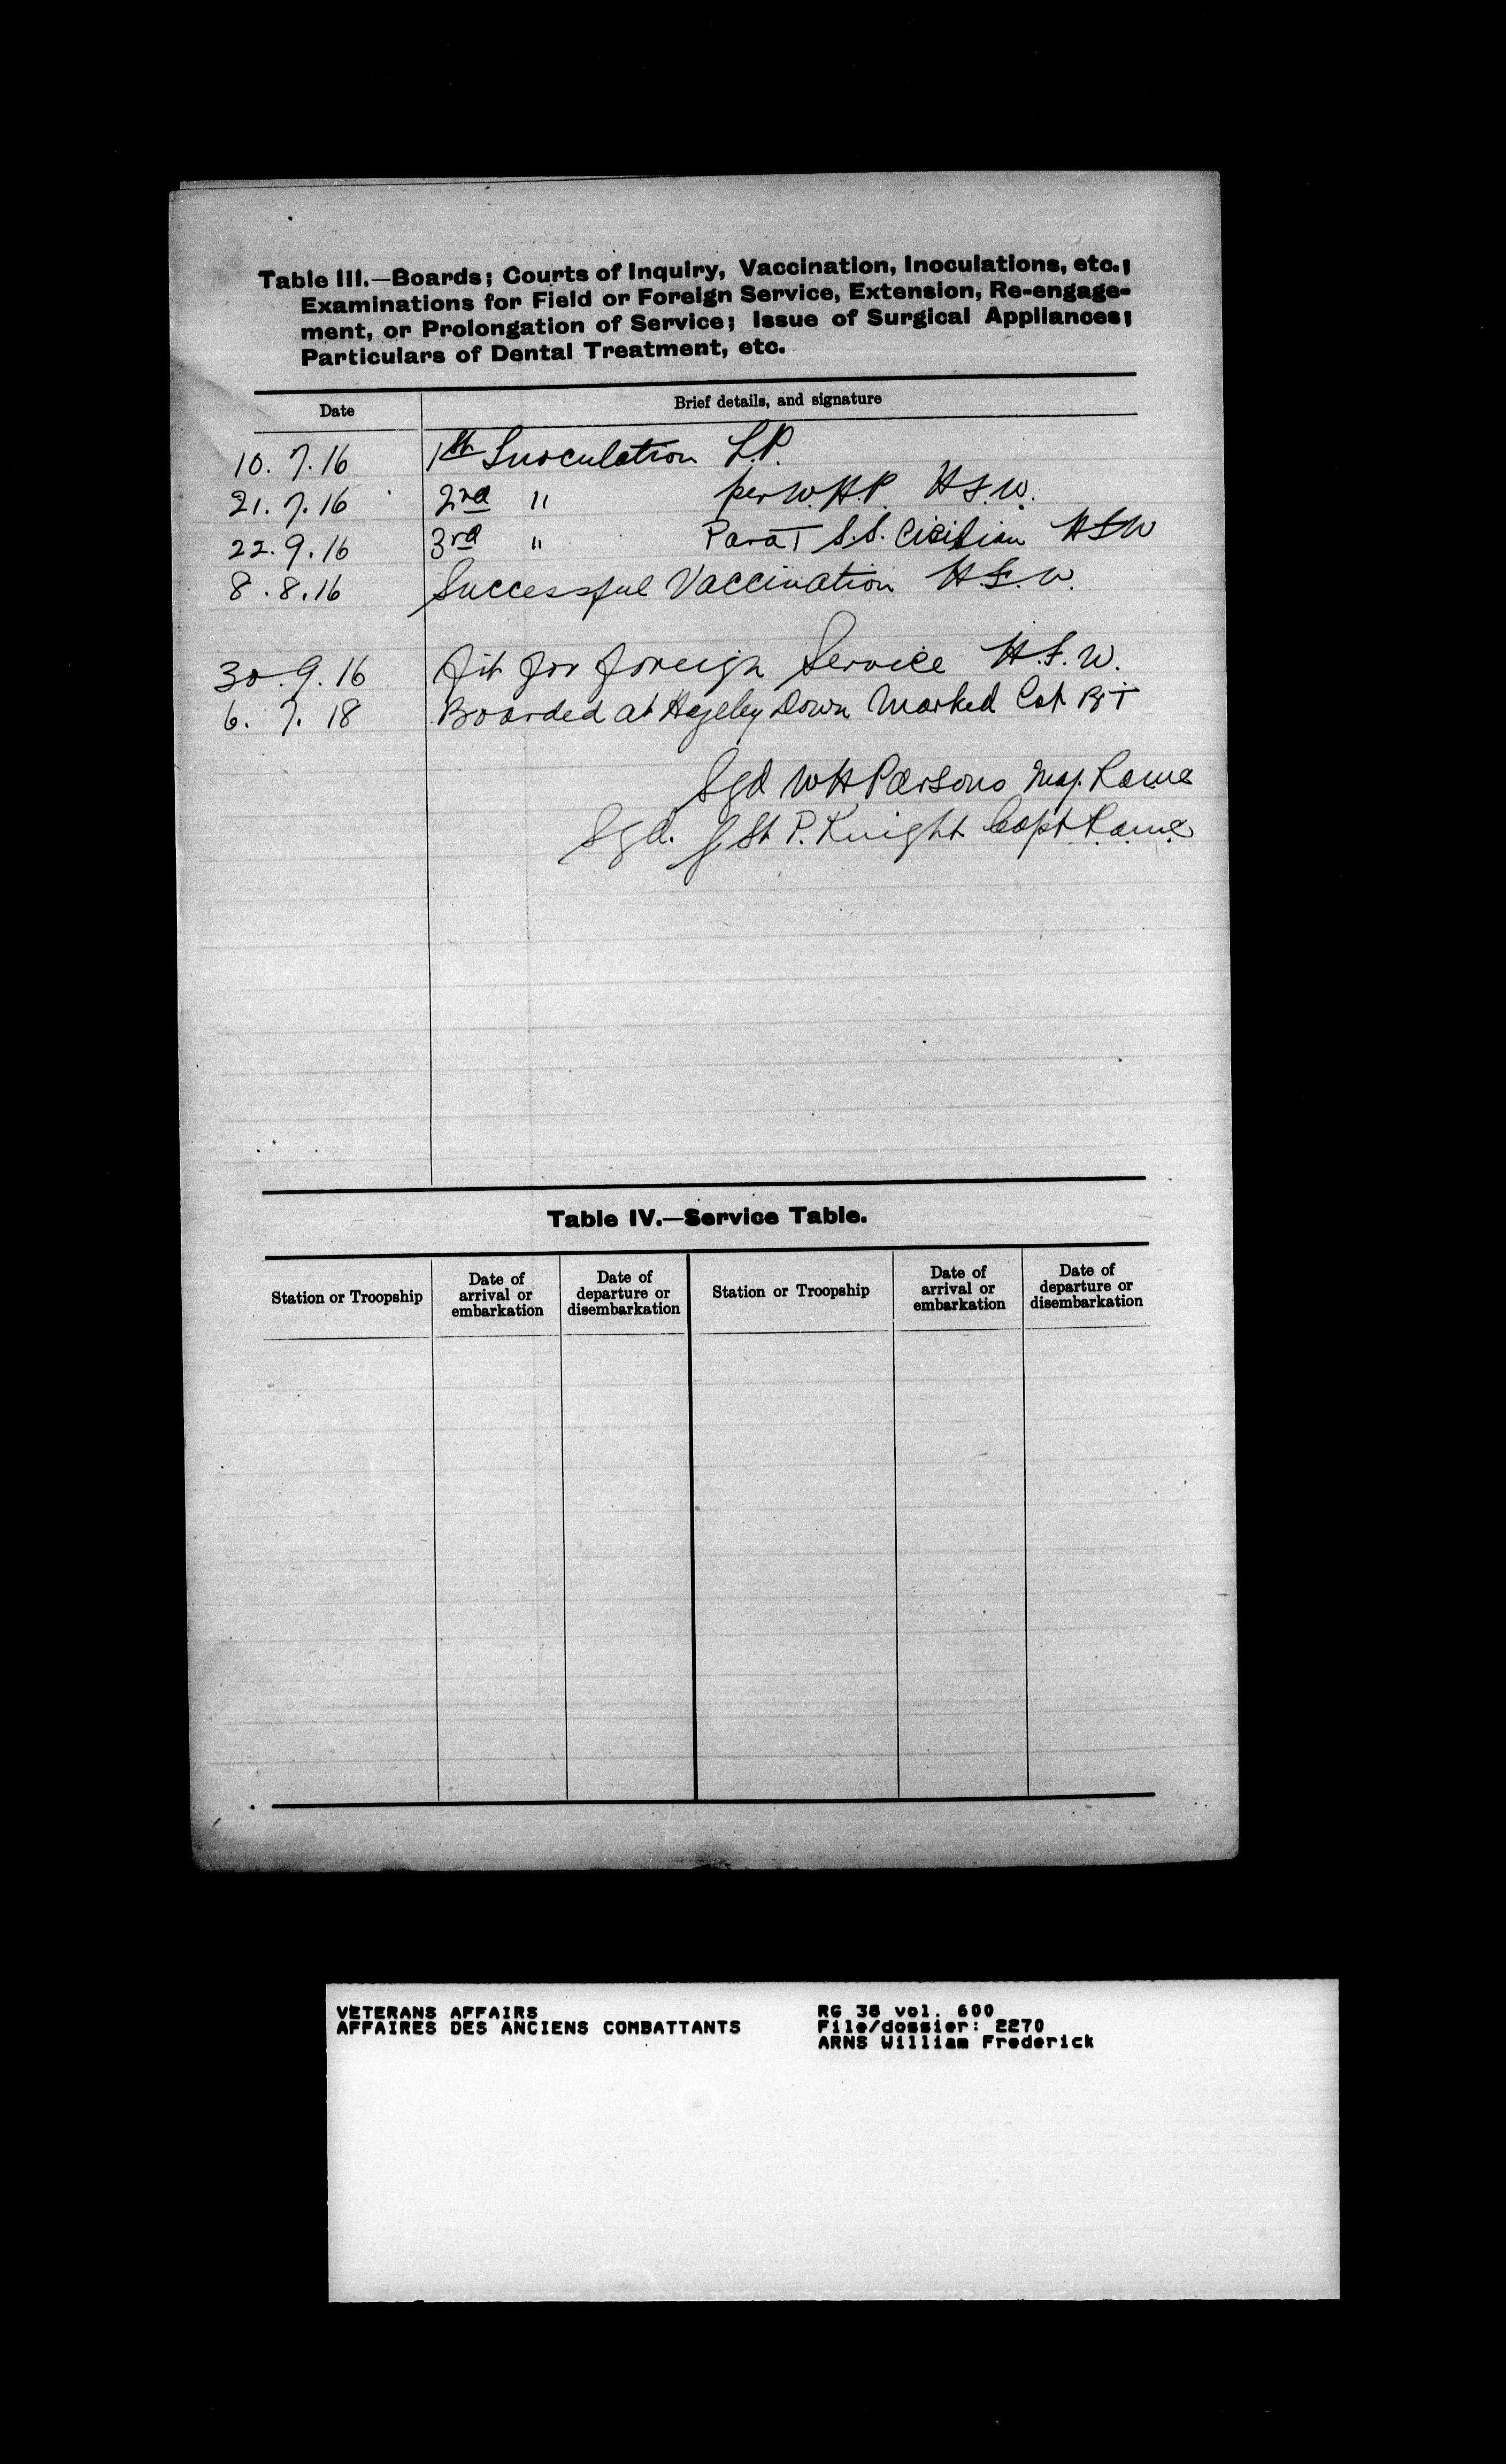 Table III.—Boards; Courts of Inquiry, Vaccination, Inoculations, etc.;
Examinations for Field or Foreign Service, Extension, Re-engage-
ment, or Prolongation of Service; Issue of Surgical Appliances;
Particulars of Dental Treatment, etc.
Date Brief details, and signature
10. 7. 16 1st Inoculation L.P.
21. 7. 16 2nd " per W.H.P. H.S.W.
22. 9. 16 3rd " Para T S.S. Cicilian HSW
8. 8. 16 Successful Vaccination H.S.W.
30. 9. 16 fit for foreign Service H.S.W.
6. 7. 18 Boarded at Hazeley Down Marked Cat
Sgd W H Parsons Maj. Ramc
Sgd. J St P. Knight Capt R.a.m.c.
Table IV.—Service Table.
Station or Troopship Date of arrival or embarkation Date of departure or disembarkation Station or Troopship Date of arrival or embarkation Date of departure or disembarkation
VETERANS AFFAIRS RG 38 vol. 600
AFFAIRES DES ANCIENS COMBATTANTS File/dossier: 2270
ARNS William Frederick